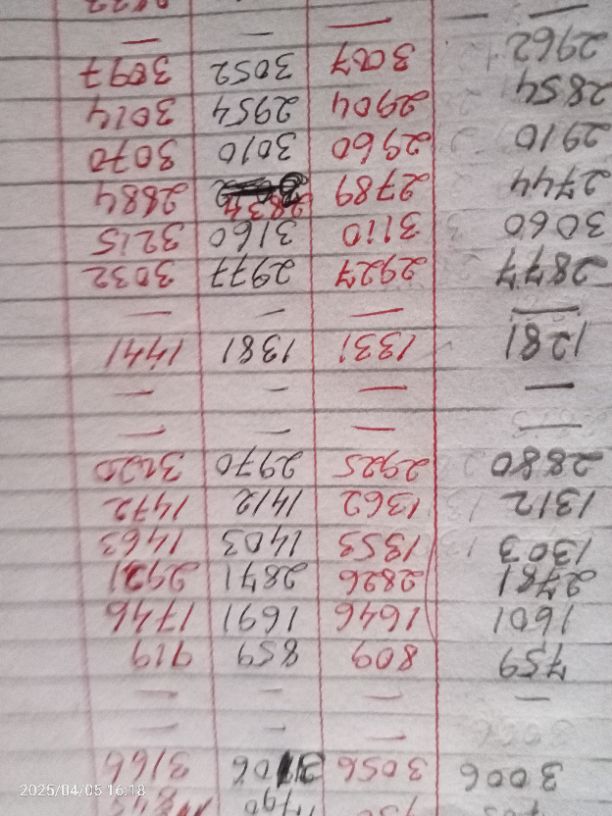 3006 3056 3106 3166
— — — —
— — — —
759 809 859 919
1601 1646 1691 1746
2781 2826 2841 2921
1303 1353 1403 1463
1312 1362 1412 1472
2880 2925 2970
— — — —
— — — —
1281 1331 1381 1441
— — — —
2877 2927 2977 3032
3060 3110 3160 3215
2744 2789 2834 2884
2910 2960 3010 3070
2854 2904 2954 3014
2962 3007 3052 3097
— — — —
2025/04/05 16:18